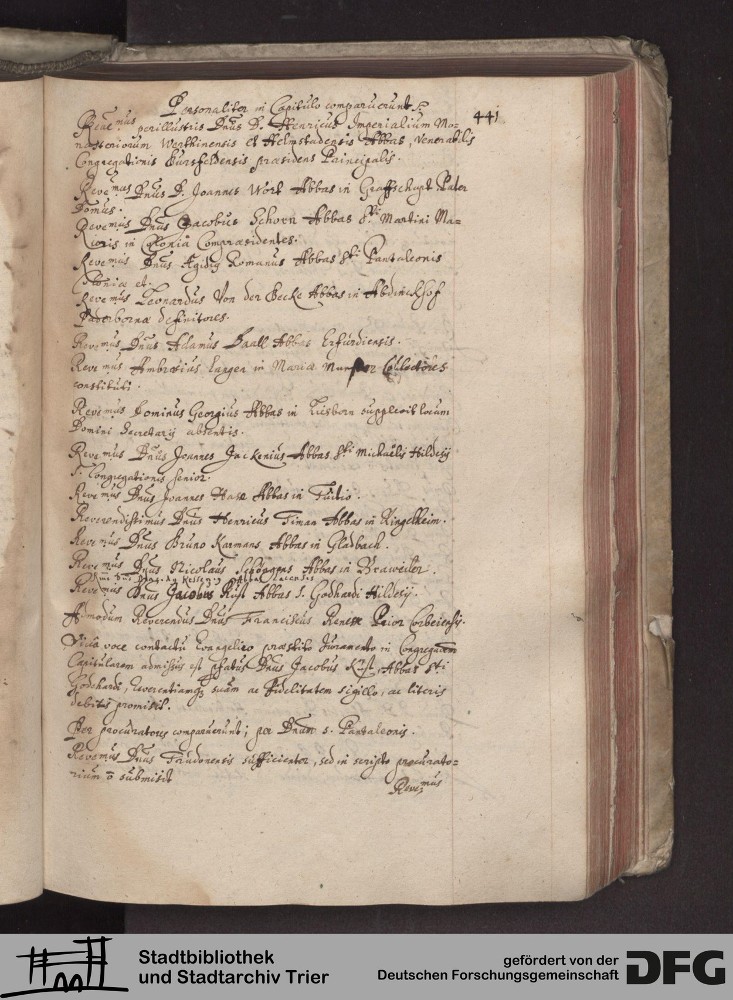 441
Personaliter in Capitulo comparuerunt
Reve mus perillustris Dnus D. Henricus Imperialium Mo=
nasteriorum Werthinensis et Helmstadensis Abbas, venerabilis
Congregationis Bursfeldensis præsidens Principalis.
Reve mus Dnus D. Joannes Worf Abbas in Graffschapt Pater
Domus.
Reve mus Dnus Jacobus Schorn Abbas Sti Martini Ma=
ioris in Colonia Compræsidentes.
Reve mus Dnus Ægidius Romanus Abbas Sti Pantaleonis
Coloniæ et
Reve mus Leonardus Von der Becke Abbas in Abdinckhof
Paderbornæ definitores.
Reve mus Dnus Adamus Saall Abbas Erfurdiensis.
Reve mus Ambrosius Langen in Mariæ Collectores
constituti.
Reve mus Dominus Georgius Abbas in Liesborn supplevit locum
Domini Secretarij absentis.
Reve mus Dnus Joannes Jackenius Abbas Sti Michaelis Hildesij
Congregationis senior.
Reve mus Dnus Joannes Hase Abbas in Tuitio.
Reverendissimus Dnus Henricus Timan Abbas in Ringelheim.
Reve mus Dnus Bruno Karmans Abbas in Gladbach.
Reve mus Dnus Nicolaus Abbas in Braweiler.
Abbas Lacensis
Reve mus Dnus Jacobus Küst Abbas S. Godhardi Hildesij.
Admodum Reverendus Dnus Franciscus Prior Corbeiensis.
Viva voce contactu Evangelico præstito Juramento in Congregatm
Capitularem admissus est Dnus Jacobus Küst, Abbas Sti
Godehardi, Reverentiamque suam ac fidelitatem sigillo, ac literis
debitis promisit.
Per procuratores comparuerunt; per Dnum S. Pantaleonis.
Reve mus Dnus Trudonensis sufficienter, sed in scripto procurato=
rium submisit
Reve mus
Stadtbibliothek
und Stadtarchiv Trier
gefördert von der
Deutschen Forschungsgemeinschaft
DFG